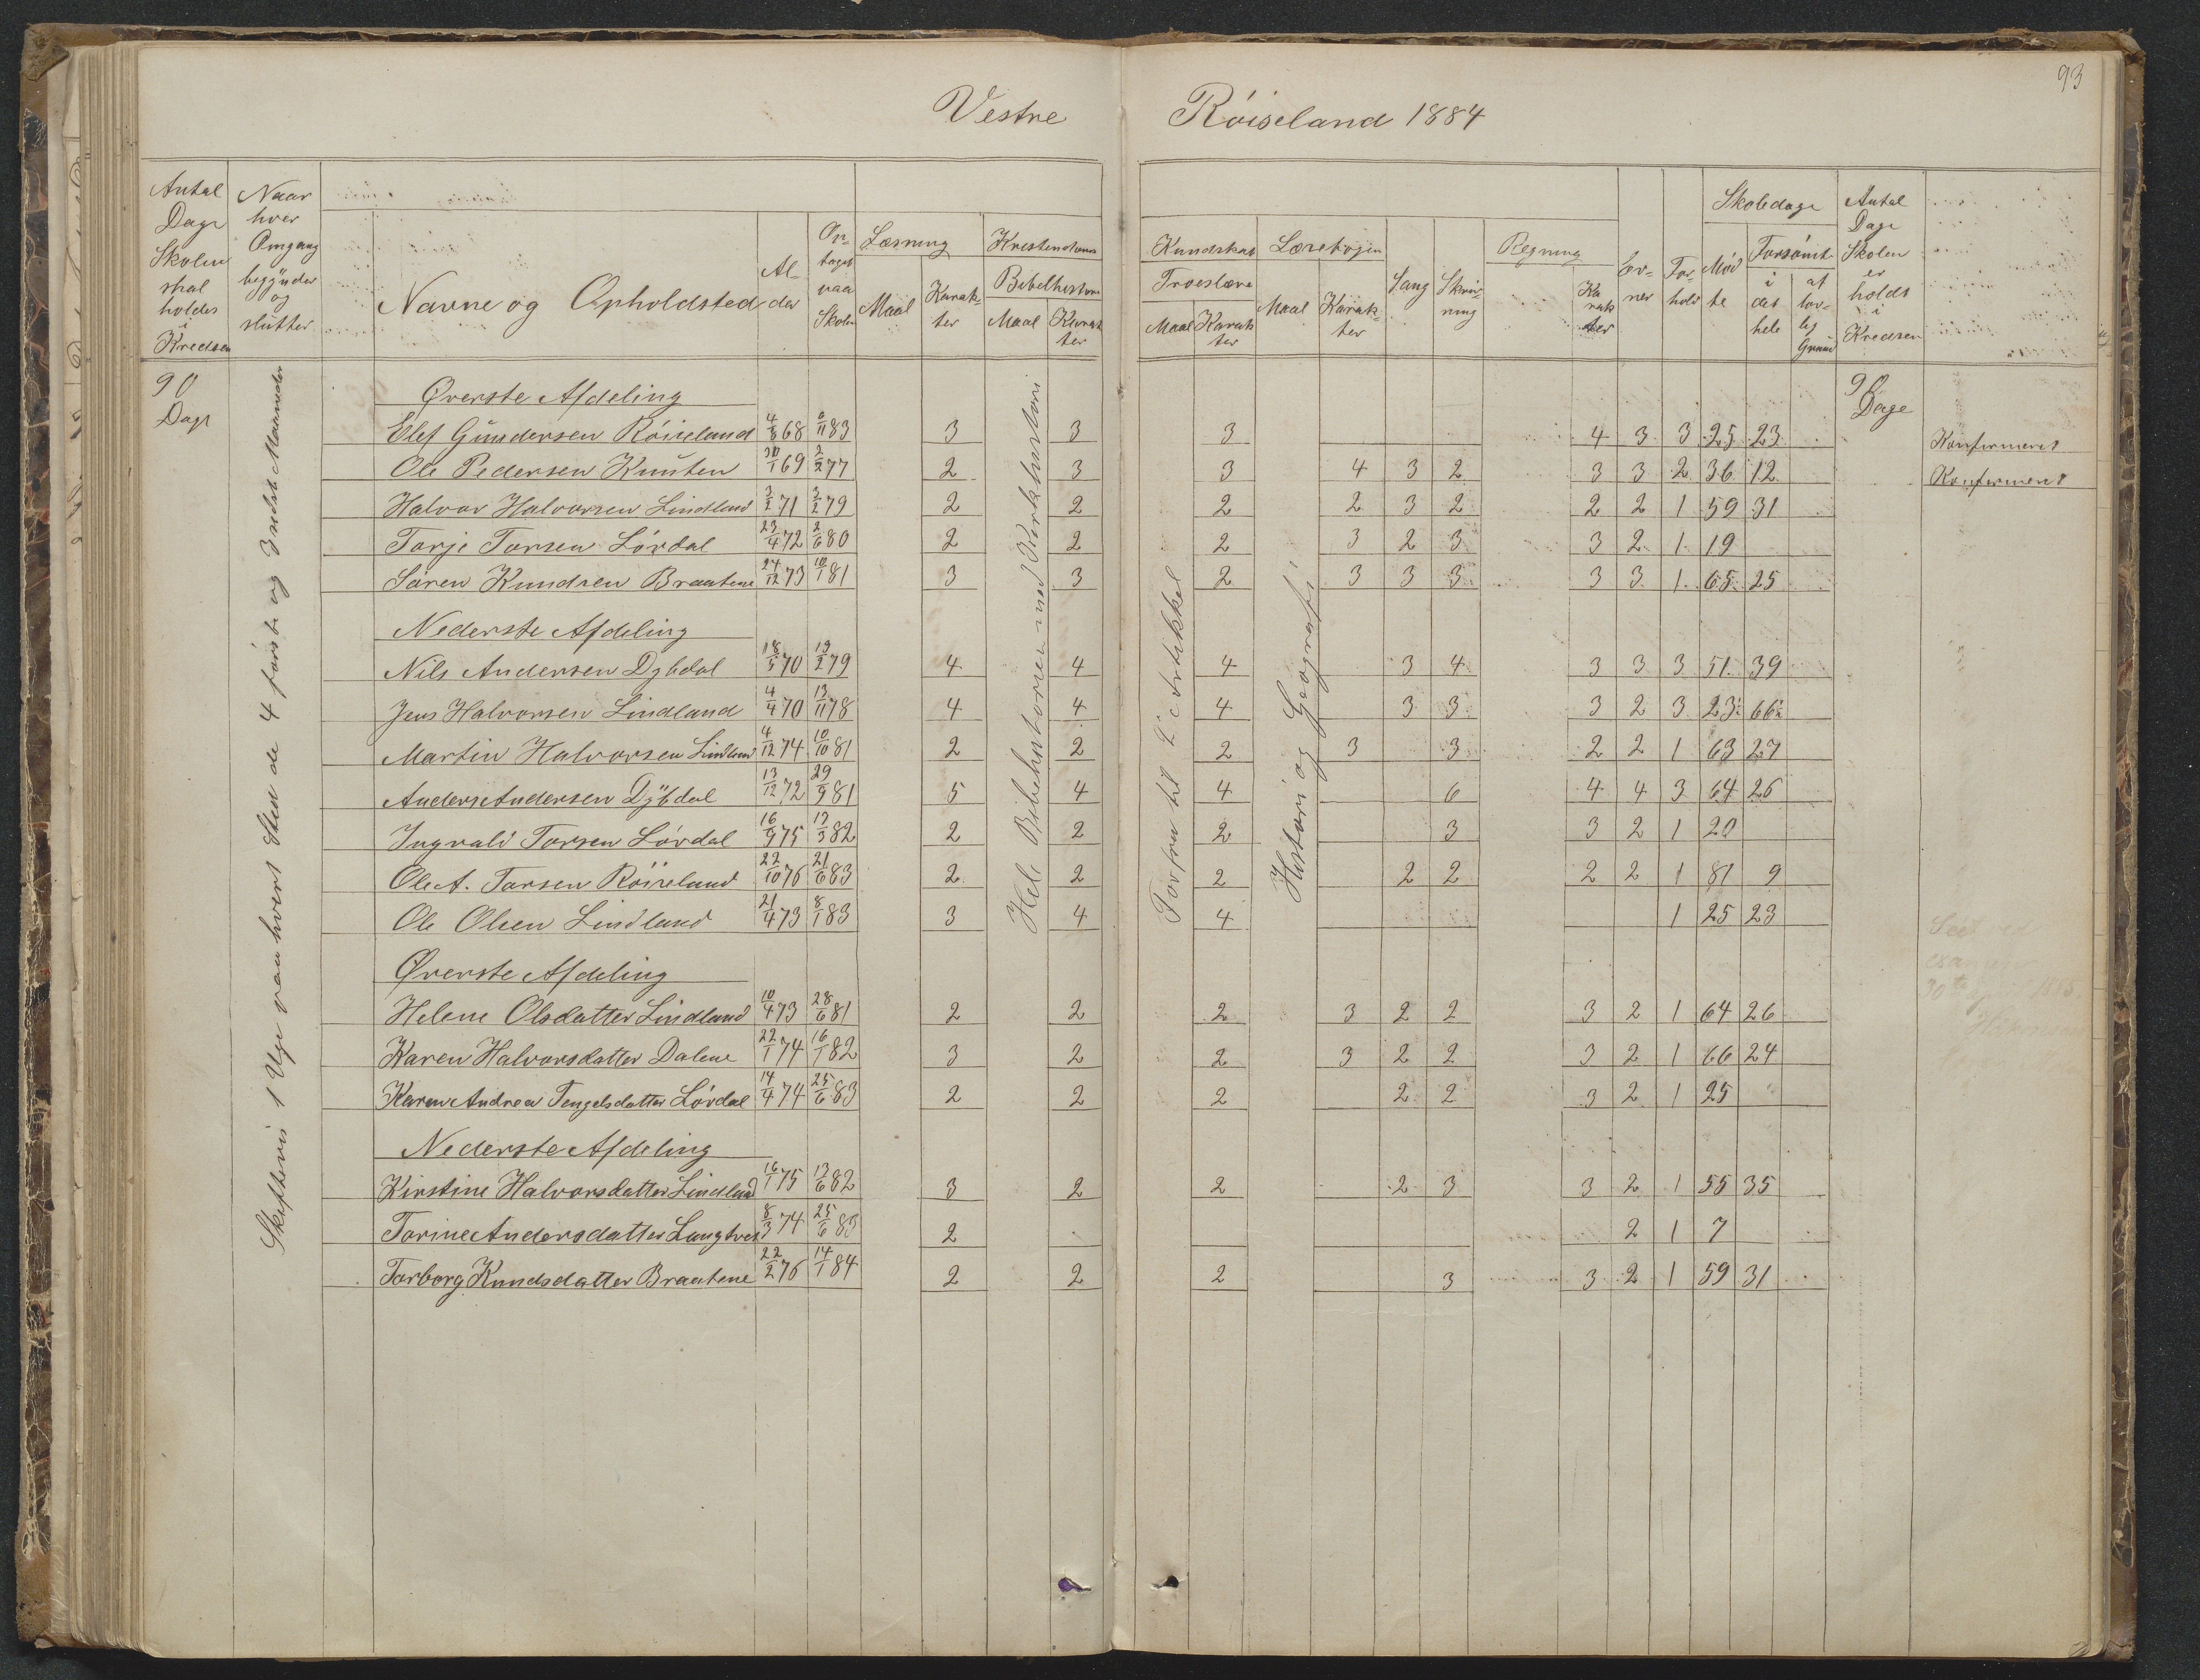 93
Vestre Röiseland 1884
Antal Dage Skolen skal holdes i Kredsen
Naar hver Omgang begÿnder og slutter
Navne og Opholdsted
Alder
Optaget paa Skolen
Læsning Maal Karakter
Kristendoms Kundskab
Bibelhistorie Maal Karakter
Troeslære Maal Karakter
Læsebogen Maal Karakter
Sang
Skrivning
Regning Karakter
Evner
Forhold
Skoledage
Mødte
Forsømt i det hele af lovlig Grund
Antal Dage Skolen er holdt i Kredsen
90 Dage
Skiftevis 1 Uge paa hvert Sted de 4 förste og 3 sidste Maaneder
Hele Bibelhistorien med Kirkehistori
Forfra til 2 Artikkel
Histori og Geografi
90 Dage
Øverste Afdeling
Elef Gundersen Röiseland 4/8 68 6/11 83 3 3 3 4 3 3 25 23 Konfirmeret
Ole Pedersen Knuten 30/1 69 2/2 77 2 3 3 4 3 2 3 3 2 36 12 Konfirmeret
Halvor Halvorsen Lindland 3/2 71 3/2 79 2 2 2 2 3 2 2 2 1 59 31
Torje Torsen Lövdal 23/4 72 2/6 80 2 2 2 3 2 3 3 2 1 19
Sören Knudsen Braatene 24/12 73 10/1 81 3 3 2 3 3 3 3 3 1 65 25
Nederste Afdeling
Nils Andersen Dybdal 18/5 70 19/2 79 4 4 4 3 4 3 3 3 51 39
Jens Halvorsen Lindland 4/4 70 13/11 78 4 4 4 3 3 3 2 3 23½ 66½
Martin Halvorsen Lindland 4/12 74 10/10 81 2 2 2 3 3 2 2 1 63 27
Anders Andersen Dÿbdal 13/12 72 29/9 81 5 4 4 6 4 4 3 64 26
Ingvald Torsen Lövdal 16/9 75 13/3 82 2 2 2 3 3 2 1 20
Ole A. Tarsen Röiseland 22/10 76 21/6 83 2 2 2 2 2 2 2 1 81 9
Ole Olsen Lindland 21/4 73 8/1 83 3 4 4 1 25 23
Øverste Afdeling
Helene Olsdatter Lindland 10/4 73 28/6 81 2 2 2 3 2 2 3 2 1 64 26
Karen Halvorsdatter Dalene 22/1 74 16/1 82 3 2 2 3 2 2 3 2 1 66 24
Karen Andrea Tengelsdatter Lövdal 14/4 74 25/6 83 2 2 2 2 2 3 2 1 25
Nederste Afdeling
Kirstine Halvorsdatter Lindland 16/1 75 13/6 82 3 2 2 2 3 3 2 1 55 35
Torine Andersdatter 8/3 74 25/6 83 2 2 1 7
Torborg Knudsdatter Braatene 22/2 76 14/1 84 2 2 2 3 3 2 1 59 31